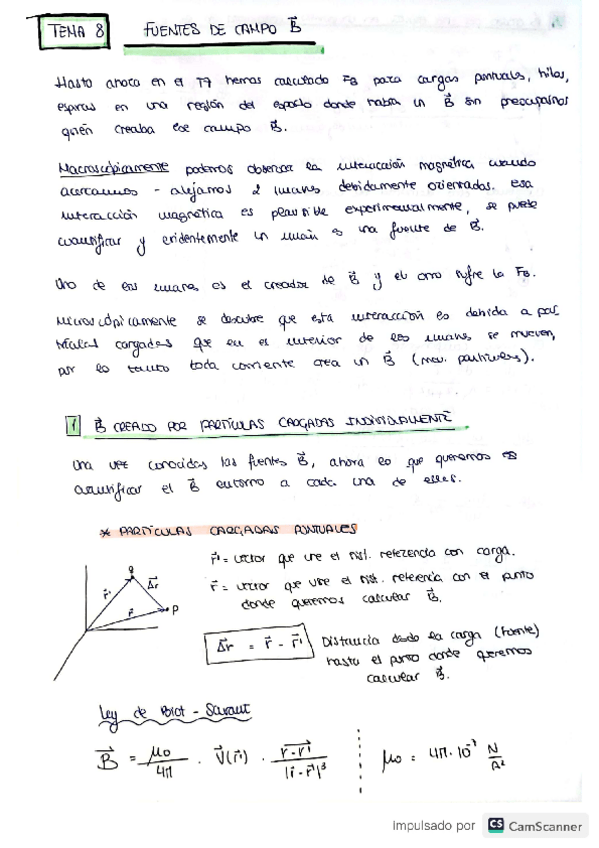 TEMA 8 FUENTES DE CAMPO B⃗
Hasta ahora en el T7 hemos calculado F_B para cargas puntuales, hilos,
espiras en una región del espacio donde había un B⃗ sin preocuparnos
quién creaba ese campo B⃗.
Macroscópicamente podemos observar la interacción magnética cuando
acercamos - alejamos 2 imanes debidamente orientados. Esa
interacción magnética es plausible experimentalmente, se puede
cuantificar y evidentemente un imán es una fuente de B⃗.
Uno de los imanes es el creador de B⃗ y el otro sufre la F_B.
Microscópicamente se descubre que esta interacción es debida a par
tículas cargadas que en el interior de los imanes se mueven,
por lo tanto toda corriente crea un B⃗ (mov. partículas).
1 B⃗ CREADO POR PARTÍCULAS CARGADAS INDIVIDUALMENTE
Una vez conocidas las fuentes B⃗, ahora lo que queremos es
cuantificar el B⃗ entorno a cada una de ellas.
* PARTÍCULAS CARGADAS PUNTUALES
q
r⃗'
Δr⃗
r⃗
P
r⃗' = vector que une el sist. referencia con carga.
r⃗ = vector que une el sist. referencia con el punto
donde queremos calcular B⃗.
Δr⃗ = r⃗ - r⃗'
Distancia desde la carga (fuente)
hasta el punto donde queremos
calcular B⃗.
Ley de Biot - Savart
B⃗ = μ₀/4π · V⃗(r⃗') · r⃗-r⃗'/|r⃗-r⃗'|³
μ₀ = 4π·10⁻⁷ N/A²
Impulsado por CS CamScanner